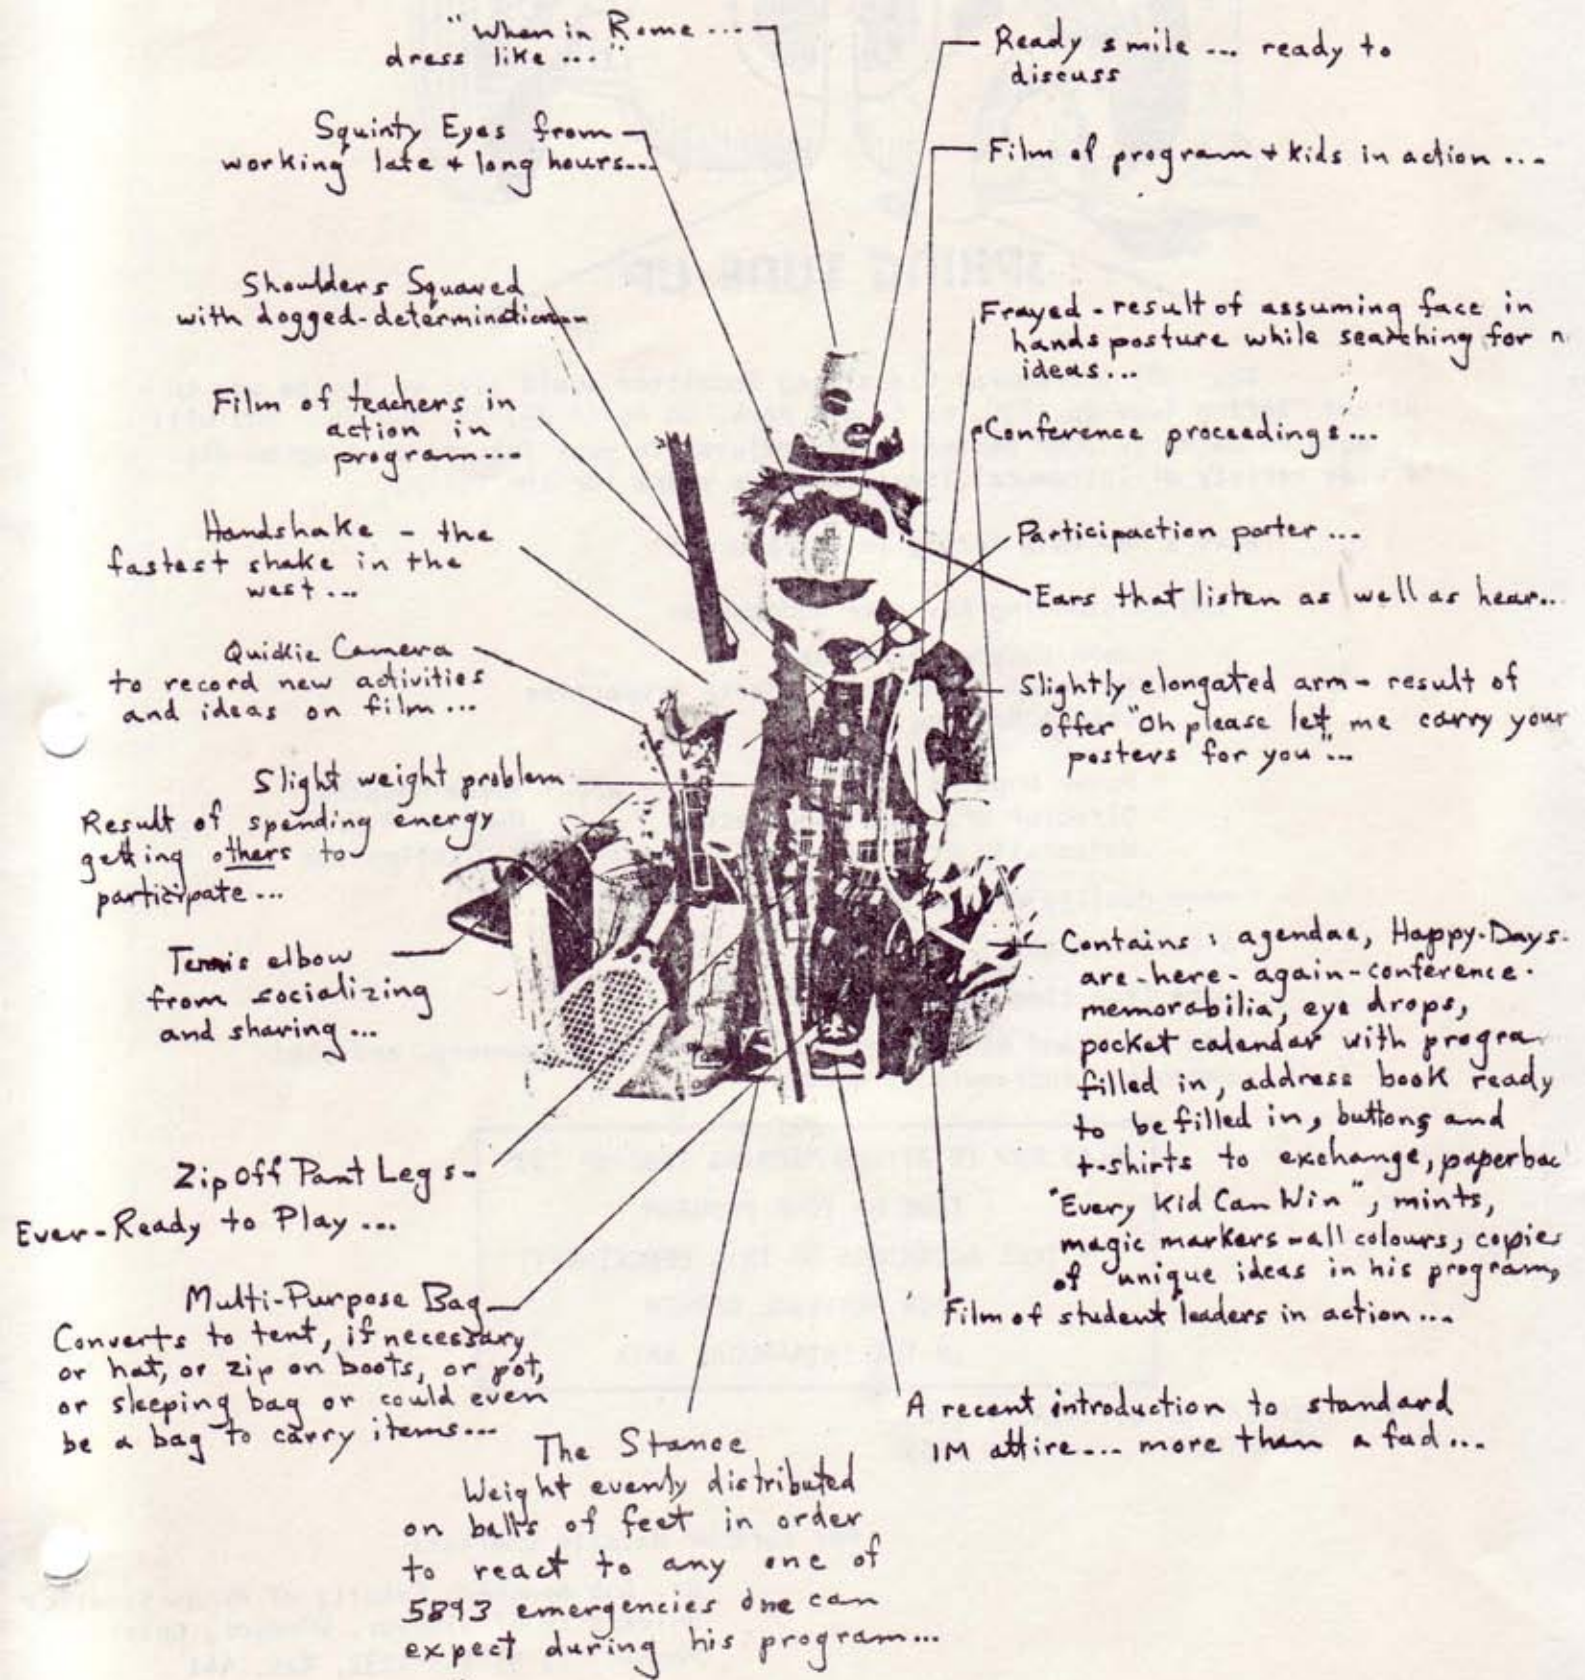 "When in Rome ...
dress like ..."
Squinty Eyes from
working late + long hours...
Shoulders Squared
with dogged-determination...
Film of teachers in
action in
program...
Handshake - the
fastest shake in the
west ...
Quickie Camera
to record new activities
and ideas on film ...
Slight weight problem
Result of spending energy
getting others to
participate ...
Tennis elbow
from socializing
and sharing ...
Zip Off Pant Legs -
Ever-Ready to Play ...
Multi-Purpose Bag
Converts to tent, if necessary
or hat, or zip on boots, or pot,
or sleeping bag or could even
be a bag to carry items...
The Stance
Weight evenly distributed
on balls of feet in order
to react to any one of
5893 emergencies one can
expect during his program...
Ready smile ... ready to
discuss
Film of program + kids in action ...
Frayed - result of assuming face in
hands posture while searching for n
ideas...
Conference proceedings...
Participaction poster ...
Ears that listen as well as hear..
Slightly elongated arm - result of
offer "Oh please let me carry your
posters for you"...
Contains : agendae, Happy-Days-
are-here-again-conference-
memorabilia, eye drops,
pocket calendar with progra
filled in, address book ready
to be filled in, buttons and
t-shirts to exchange, paperbac
"Every Kid Can Win", mints,
magic markers - all colours, copies
of unique ideas in his program,
Film of student leaders in action ...
A recent introduction to standard
IM attire... more than a fad ...